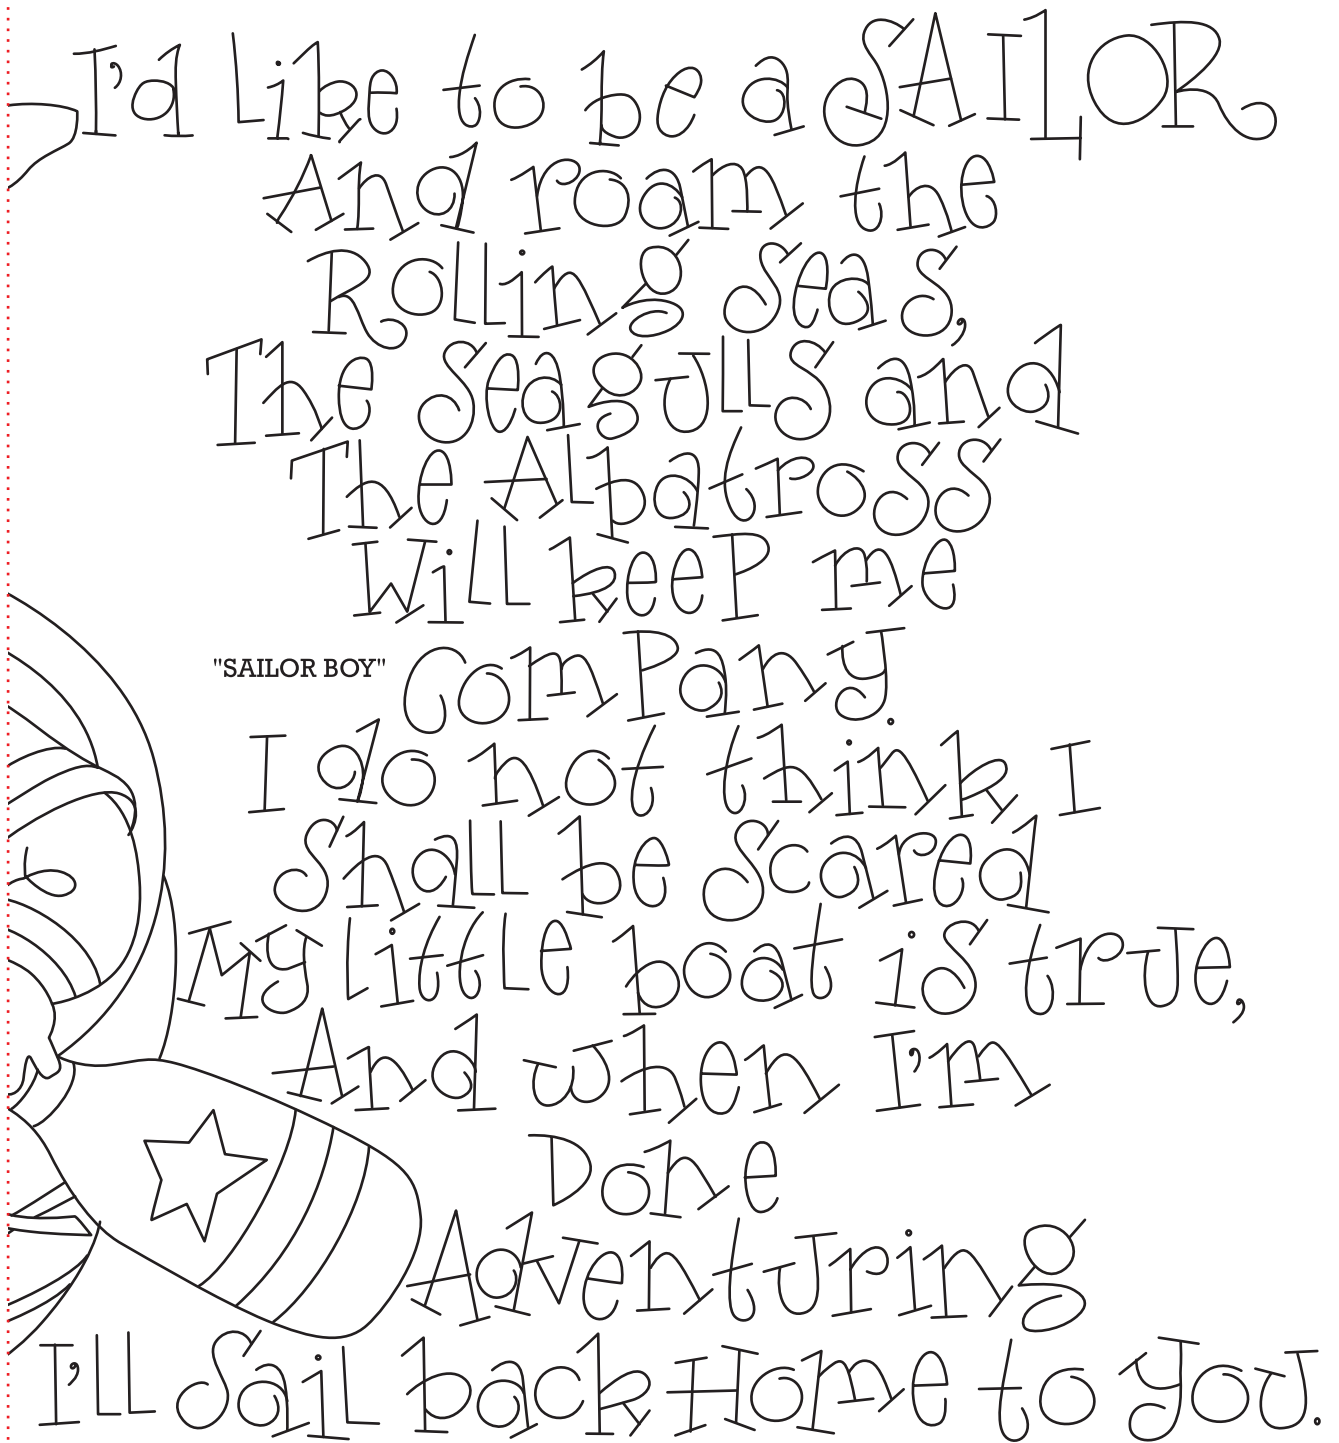 I'd Like to be a SAILOR
And roam the
Rolling Seas,
The Seagulls and
The Albatross
Will keep me
"SAILOR BOY"
Company.
I do not think I
Shall be Scared
My little boat is true,
And when I'm
Done
Adventuring
I'll Sail back Home to you.